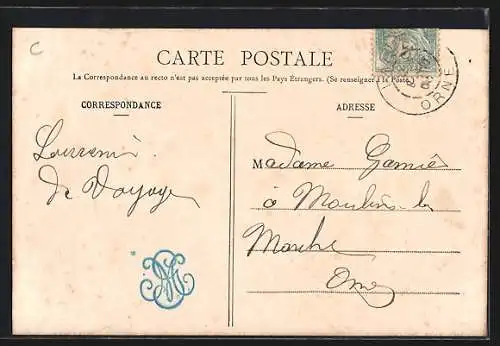 C
CARTE POSTALE
La Correspondance au recto n'est pas acceptée par tous les Pays Étrangers. (Se renseigner à la Poste.)
CORRESPONDANCE
ADRESSE
ORNE
Souvenir
de Voyage
Madame Garnier
à Moulins-la
Marche
Orne